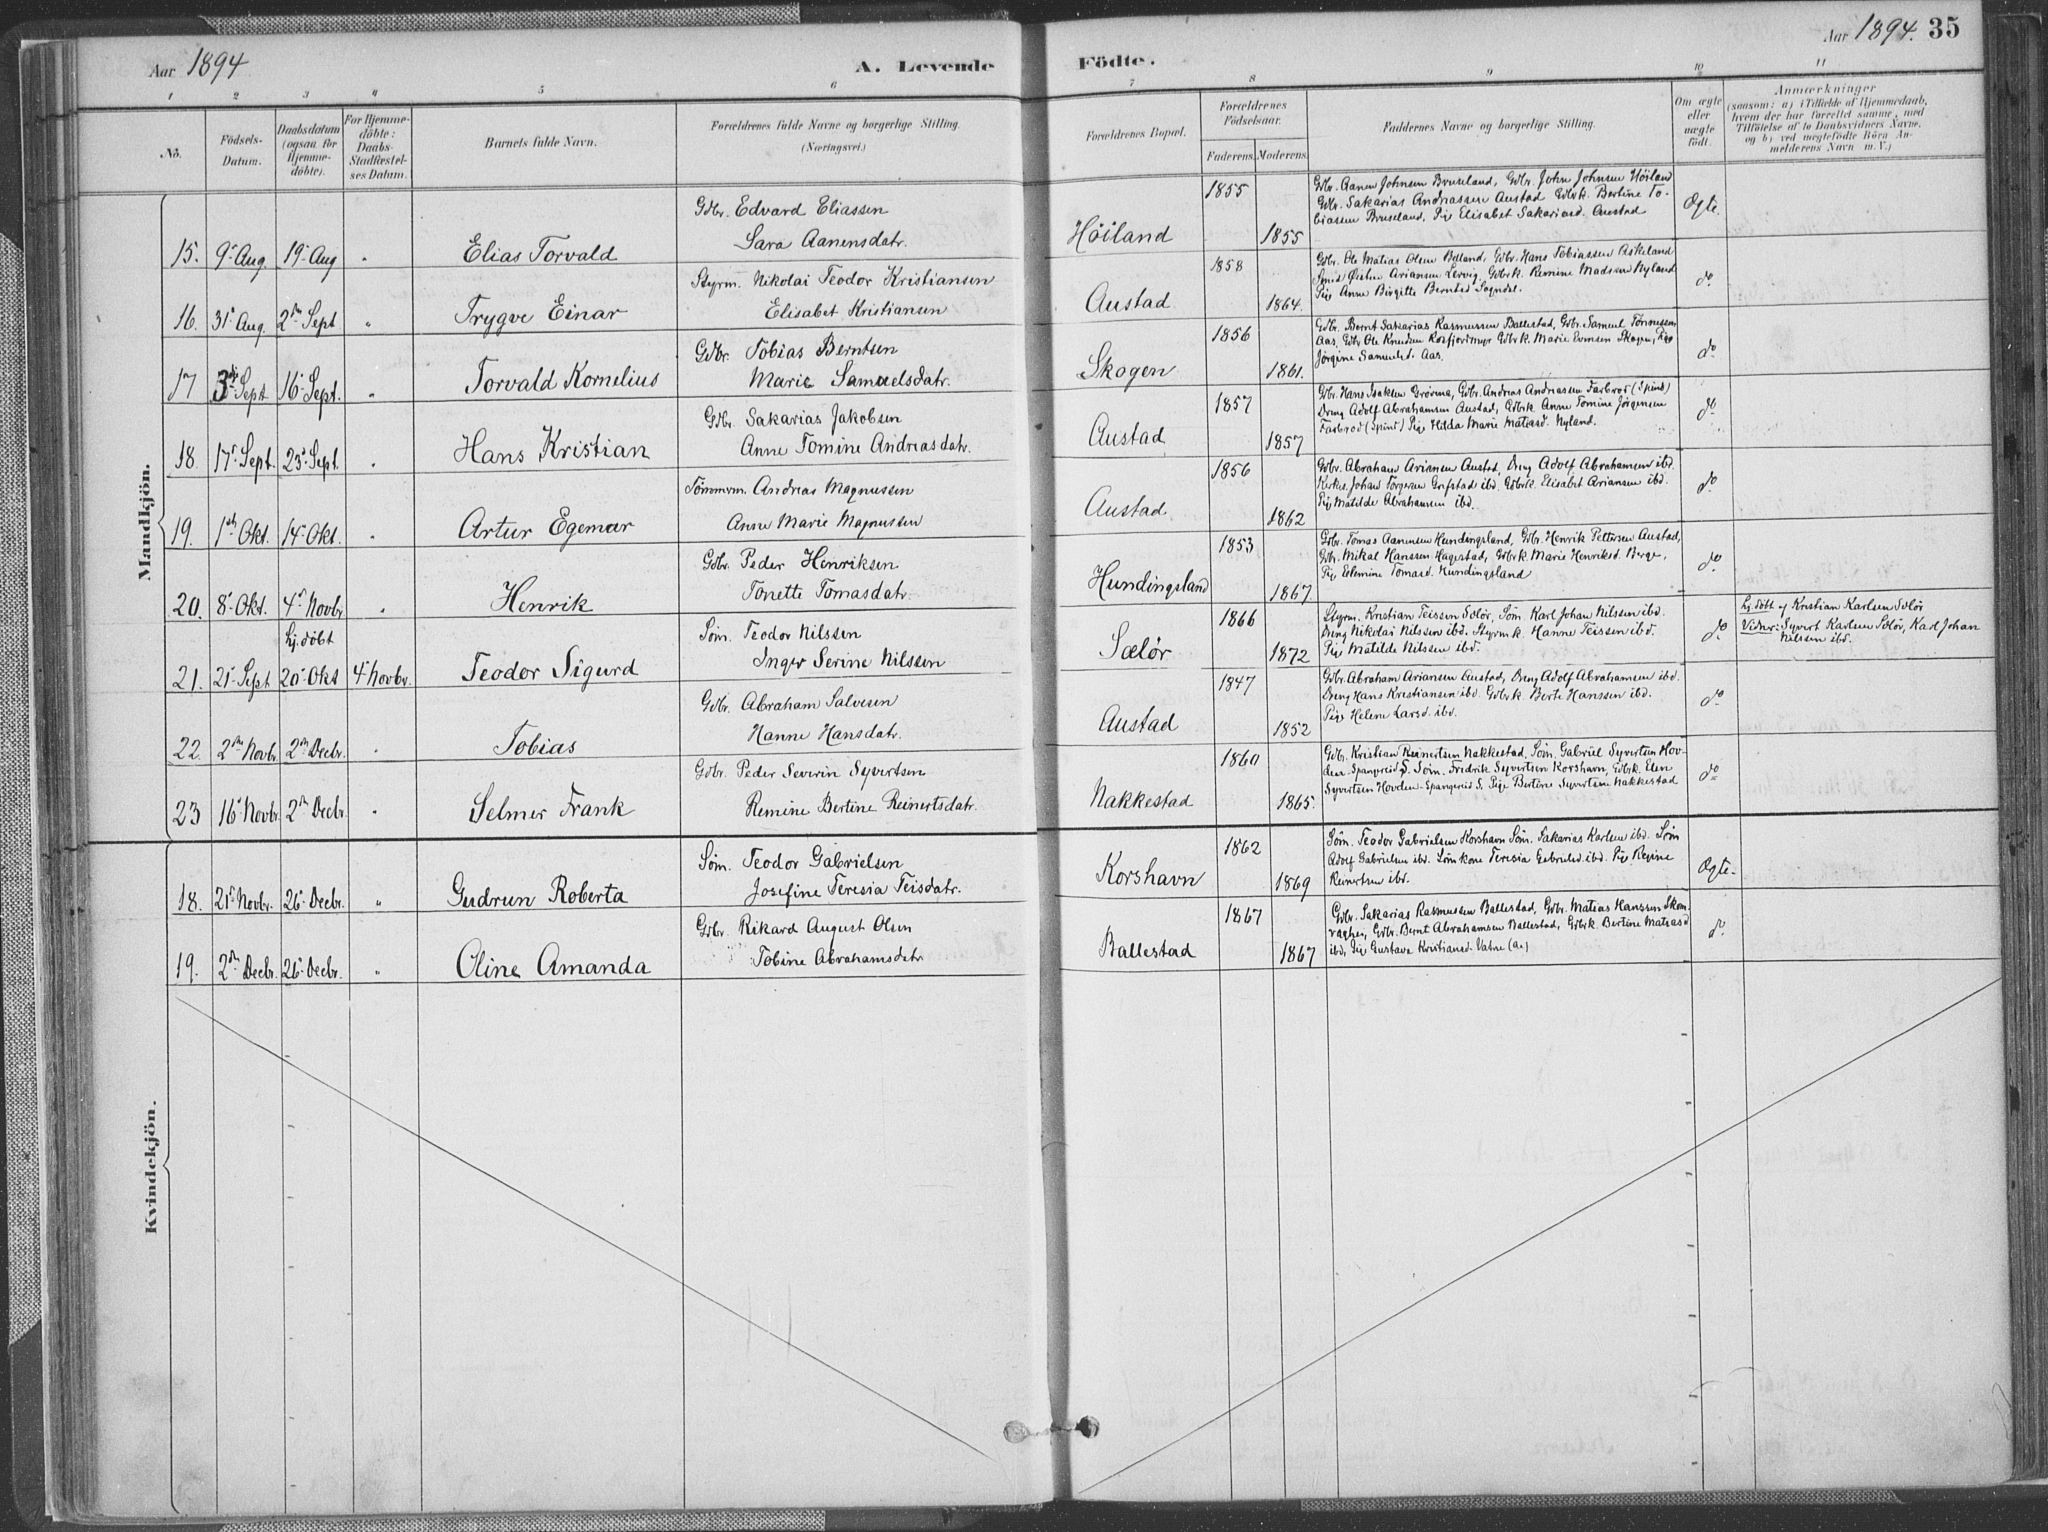 Aar 1894
A. Levende
Födte.
Aar 1894. 35
1 2 3 4 5 6 7 8 9 10 11
No.
Födsels-
Datum.
Daabsdatum
(ogsaa for
Hjemme-
döbte).
For Hjemme-
döbte:
Daabs-
Stadfæstel-
ses Datum.
Barnets fulde Navn.
Forældrenes fulde Navne og borgerlige Stilling.
(Næringsvei.)
Forældrenes Bopæl.
Forældrenes
Födselsaar.
Faderens. Moderens.
Faddernes Navne og borgerlige Stilling.
Om ægte
eller
uægte
födt.
Anmærkninger
(saasom: a) i Tilfælde af Hjemmedaab,
hvem der har forrettet samme, med
Tilföielse af to Daabsvidners Navne,
og b) ved uægtefödte Börn An-
melderens Navn m. V.)
Mandkjön.
15. 9 Aug. 19 Aug " Elias Torvald
Gdbr. Edvard Eliassen
Sara Aanensdatr.
Höiland 1855 1855
Gdbr. Aanen Johnsen Bruseland, Gdbr. John Johnsen Höiland
Gdbr. Sakarias Andreassen Austad Gdbrk. Bertine To-
biassen Bruseland, Pige Elisabet Sakariasd. Austad
Ægte.
16. 31 Aug. 2den Sept " Trygve Einar
Styrm. Nikolai Teodor Kristiansen
Elisabet Kristiansen
Austad 1858 1864.
Gdbr. Ole Matias Olsen Byland, Gdbr. Hans Tobiassen Askeland
Smed Øisten Ariansen Lervig, Gdbrk. Remine Madssen Nyland
Pige Anne Birgitte Berntsd. Sogndal.
do.
17 3die Sept 16 Sept. " Torvald Kornelius
Gdbr. Tobias Berntsen
Marie Samuelsdatr.
Skogen 1856 1861.
Gdbr. Bernt Sakarias Rasmussen Ballestad, Gdbr. Samuel Tønnessen
Aas, Gdbr. Ole Knudsen Rosfjordmyr Gdbrk. Marie Evensen Skogen, Pige
Jørgine Samuelsd. Aas.
do.
18. 17 Sept. 23 Sept. " Hans Kristian
Gdbr. Sakarias Jakobsen
Anne Tomine Andreasdatr.
Austad 1857 1857
Gdbr. Hans Isaksen Grönna, Gdbr. Andreas Andreassen Farbrod (Spind)
Dreng Adolf Abrahamsen Austad, Gdbrk. Anne Tomine Jörgensen
Farbrod (Spind) Pige Hilda Marie Matiasd. Nyland.
do.
19. 1ste Okt. 14 Okt. " Artur Egemar
Tömmerm. Andreas Magnussen
Anne Marie Magnussen
Austad 1856 1862
Gdbr. Abraham Ariansen Austad, Dreng Adolf Abrahamsen ibd.
Kirkes. Johan Torgersen Grefstad ibd. Gdbrk. Elisabet Ariansen ibd.
Pige Matilde Abrahamsen ibd.
do.
20. 8 Okt. 4 Novbr " Henrik
Gdbr. Peder Henriksen
Tonette Tomasdatr.
Hundingsland 1853 1867
Gdbr. Tomas Aanensen Hundingsland, Gdbr. Henrik Pettersen Austad,
Gdbr. Mikal Hanssen Hagestad, Gdbrk. Marie Henriksd. Berge,
Pige Elemine Tomasd. Hundingsland
do.
21. 21 Sept hj. döbt 20 Okt 4 Novbr. Teodor Sigurd
Söm. Teodor Nilssen
Inger Serine Nilssen
Sælör 1866 1872
Styrm. Kristian Teissen Selör, Söm. Karl Johan Nilssen ibd.
Dreng Nikolai Nilssen ibd. Styrm.k. Hanne Teissen ibd.
Pige Matilde Nilssen ibd.
do.
hj. döbt af Kristian Karlsen Selör
Vidner: Syvert Karlsen Selör, Karl Johan
Nilsen ibd.
22. 2den Novbr. 2den Decbr. " Tobias
Gdbr. Abraham Salvesen
Hanne Hansdatr.
Austad 1847 1852
Gdbr. Abraham Ariansen Austad, Dreng Adolf Abrahamsen ibd.
Dreng Hans Kristiansen ibd. Gdbrk. Berte Hanssen ibd.
Pige Helene Larsd. ibd.
do.
23 16 Novbr. 2den Decbr. " Selmer Frank
Gdbr. Peder Severin Syvertsen
Remine Bertine Reinertsdatr.
Nakkestad 1860 1865.
Gdbr. Kristian Reinertsen Nakkestad, Söm. Gabriel Syvertsen Hov-
den Spangereid S. Söm. Fredrik Syvertsen Korshavn, Gdbrk. Elen
Syvertsen Hovden - Spangereid S. Pige Bertine Syvertsen Nakkestad
do
Kvindekjön.
18. 21 Novbr. 26 Decbr. " Gudrun Roberta
Söm. Teodor Gabrielsen
Josefine Teresia Teisdatr.
Korshavn 1862 1869
Söm. Teodor Gabrielsen Korshavn Söm. Sakarias Karlsen ibd. Söm
Adolf Gabrielsen ibd. Sömkone Teresia Gabrielsd. ibd. Pige Regine
Reinertsen ibd.
Ægte.
19. 2den Decbr. 26 Decbr. " Oline Amanda
Gdbr. Rikard August Olsen
Tobine Abrahamsdatr.
Ballestad 1867 1867
Gdbr. Sakarias Rasmussen Ballestad, Gdbr. Matias Hanssen Skom-
ragher, Gdbr. Bernt Abrahamsen Ballestad, Gdbrk. Bertine Matiasd
ibd, Pige Gustava Kristiansd. Vatne
do.